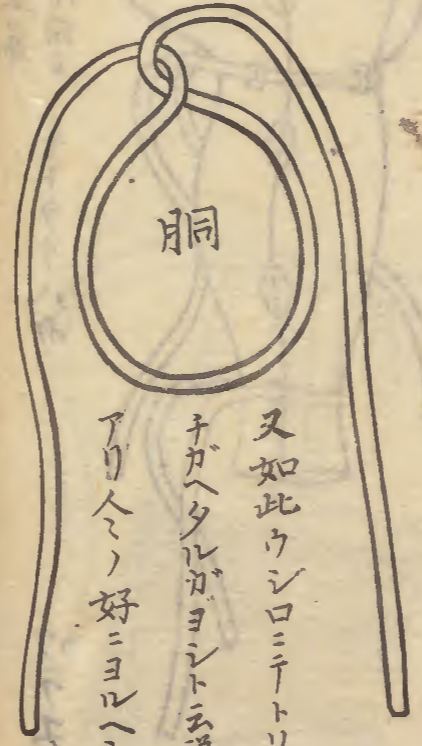 胴
又如此ウシロニテトリ
チガヘタルガヨシト云
アリ人々ノ好ニヨルヘ